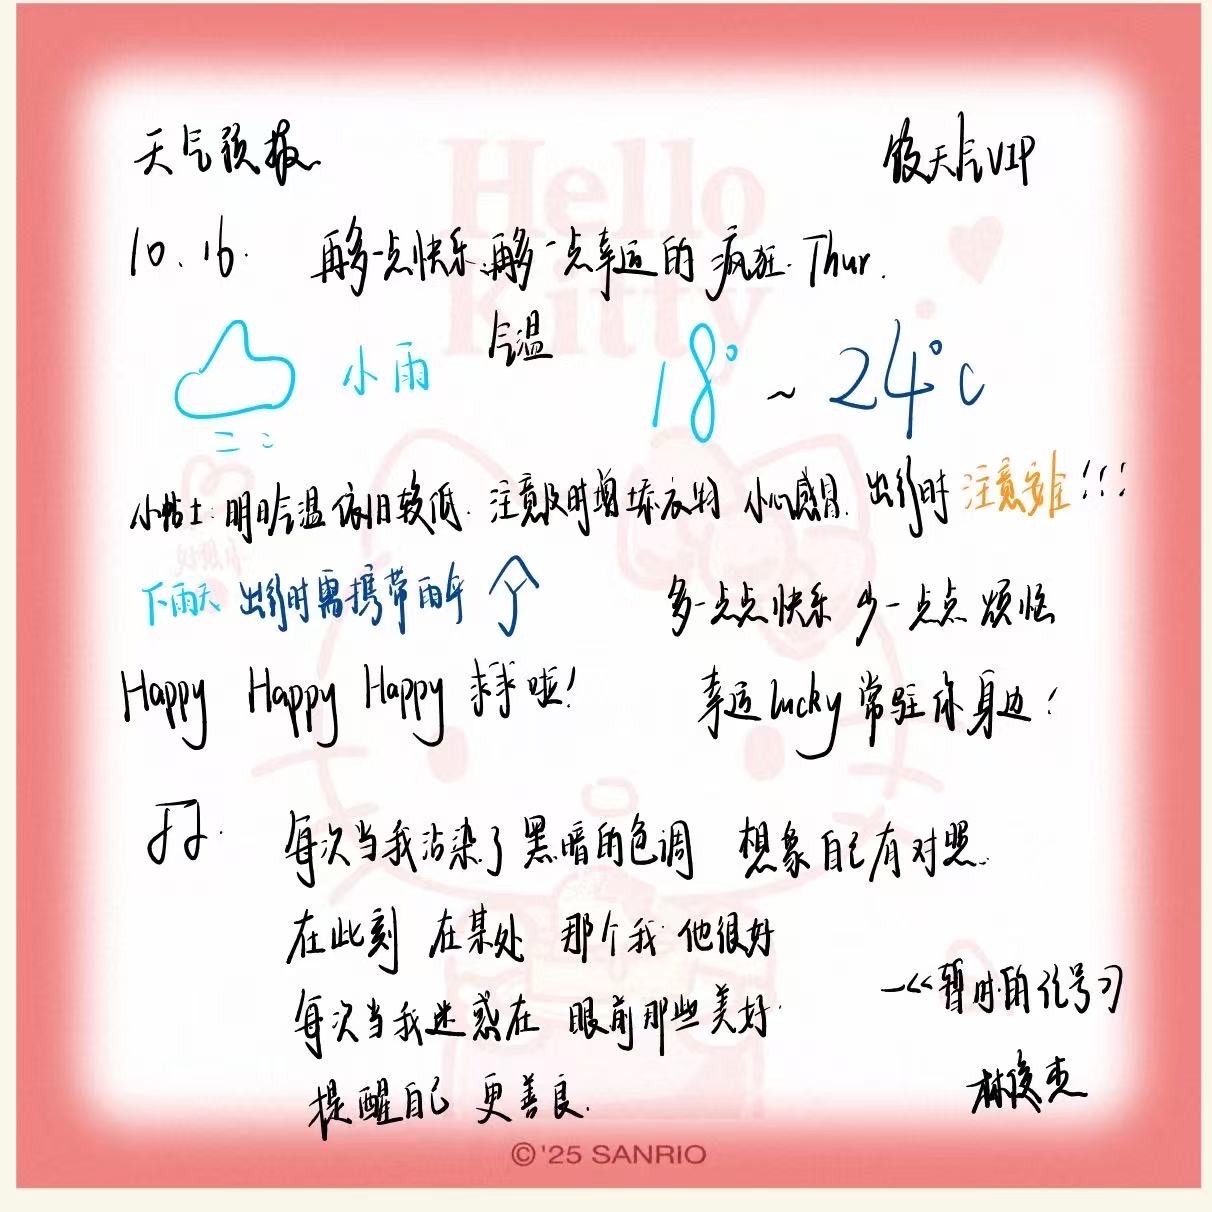 天气预报
彼天气VIP
Hello
Kitty
10.16. 再多一点快乐 再多一点幸运的疯狂. Thur.
小雨 气温 18°~24°C
小贴士: 明日气温依旧较低. 注意及时增添衣物 小心感冒. 出行时 注意安全!!!
下雨天 出行时需携带雨伞
多一点点快乐 少一点点烦恼
Happy Happy Happy 啦!
幸运lucky常驻你身边!
每次当我沾染了黑暗的色调 想象自己有对照.
在此刻 在某处 那个我 他很好
—《暂时的记号》
每次当我迷惑在 眼前那些美好
提醒自己 更善良.
林俊杰
©'25 SANRIO